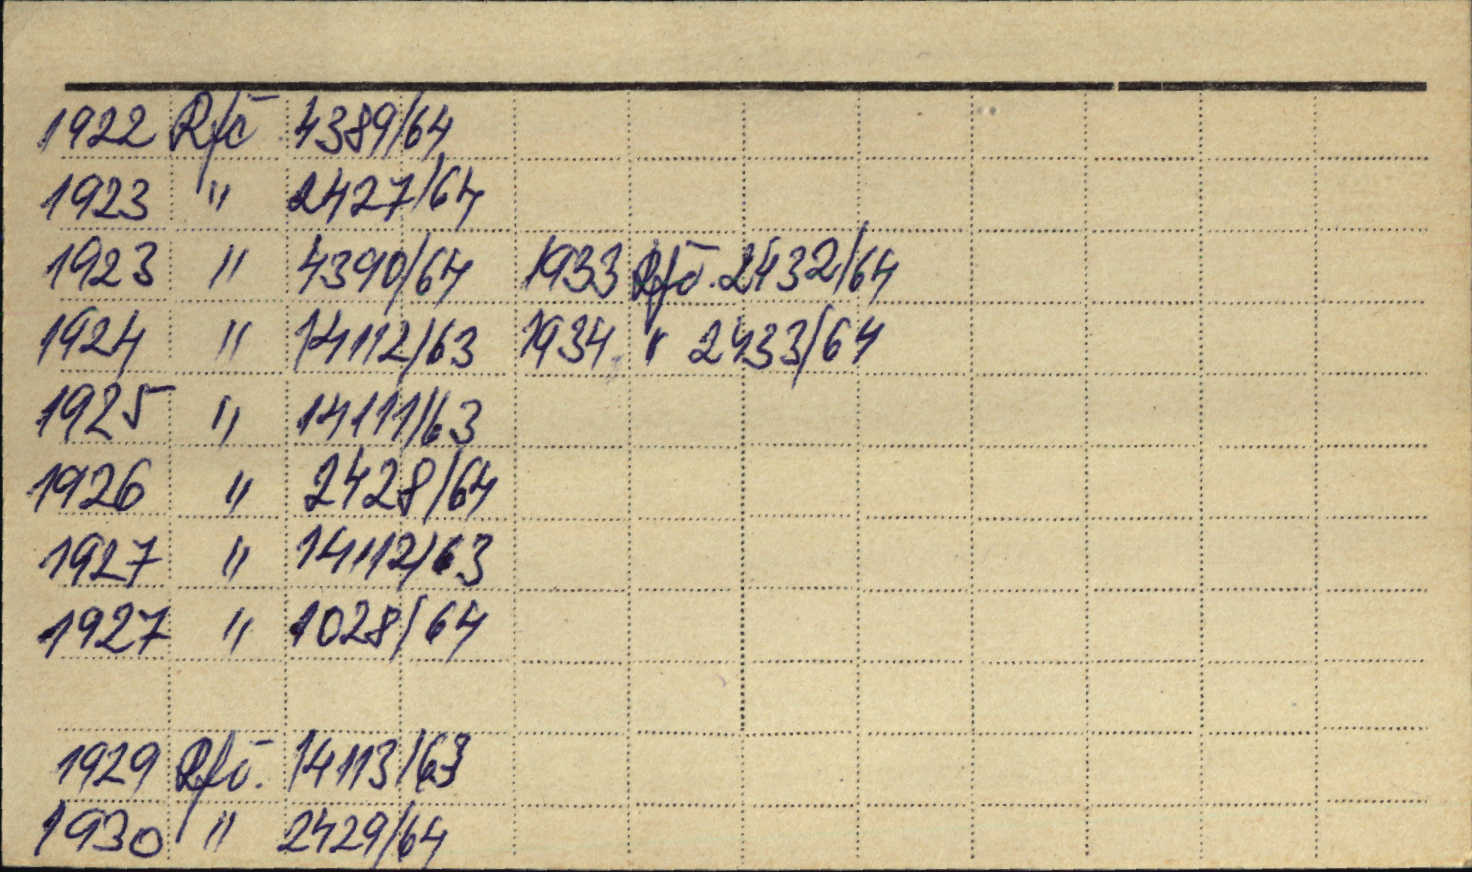 1922 Rfč 4389/64
1923 " 2427/64
1923 " 4390/64 1933 Rfč. 2432/64
1924 " 14112/63 1934 " 2433/64
1925 " 14111/63
1926 " 2428/64
1927 " 14112/63
1927 " 1028/64
1929 Rfč. 14113/63
1930 " 2429/64